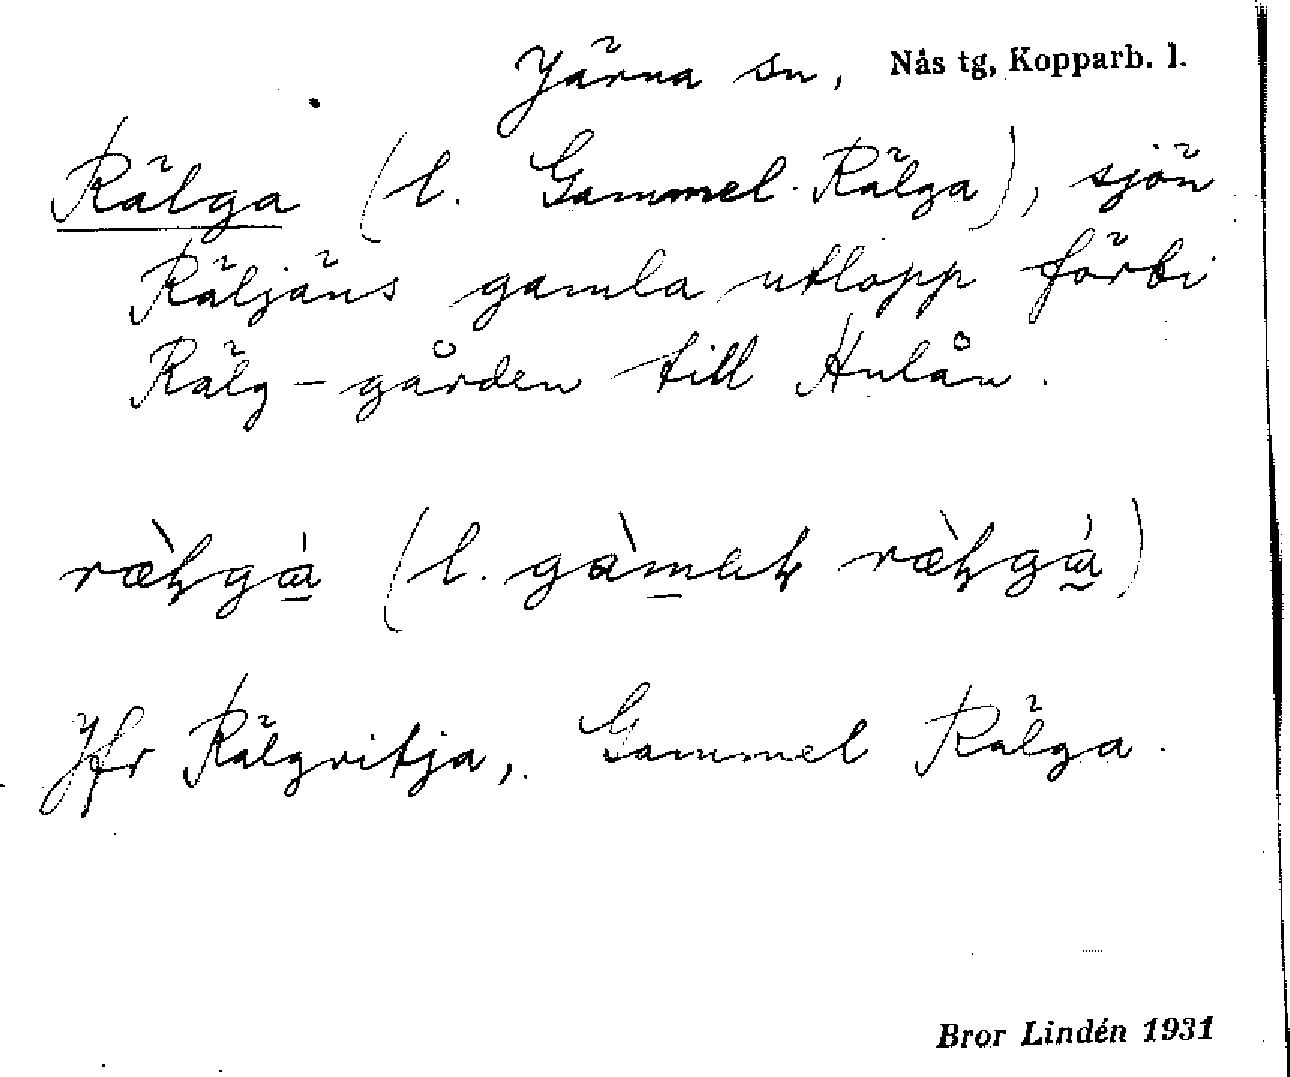 Järna sn, Nås tg, Kopparb. l.
Rälga (l. Gammel-Rälga), sjön
Räljäns gamla utlopp förbi
Rälg-gården till Hulån.
ræ̀ɫgá (l. gàmɐɫ ræ̀ɫgá)
Jfr Rälgvitja, Gammel Rälga.
Bror Lindén 1931